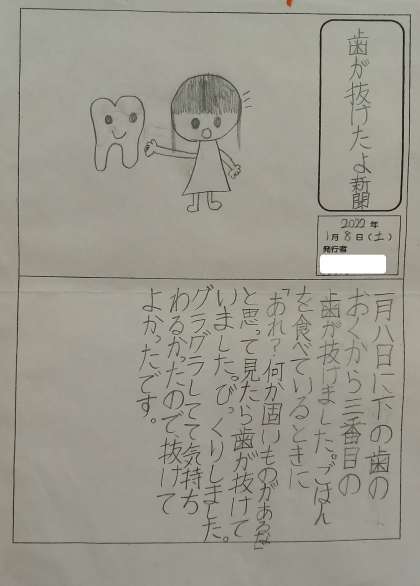 歯が抜けたよ新聞
2022年
1月8日(土)
発行者
一月八日に下の歯の
おくから三番目の
歯が抜けました。ごはん
を食べているときに
「あれ?何か固いものがあるな」
と思って見たら歯が抜けて
いました。びっくりしました。
グラグラしてて気持ち
わるかったので、抜けて
よかったです。